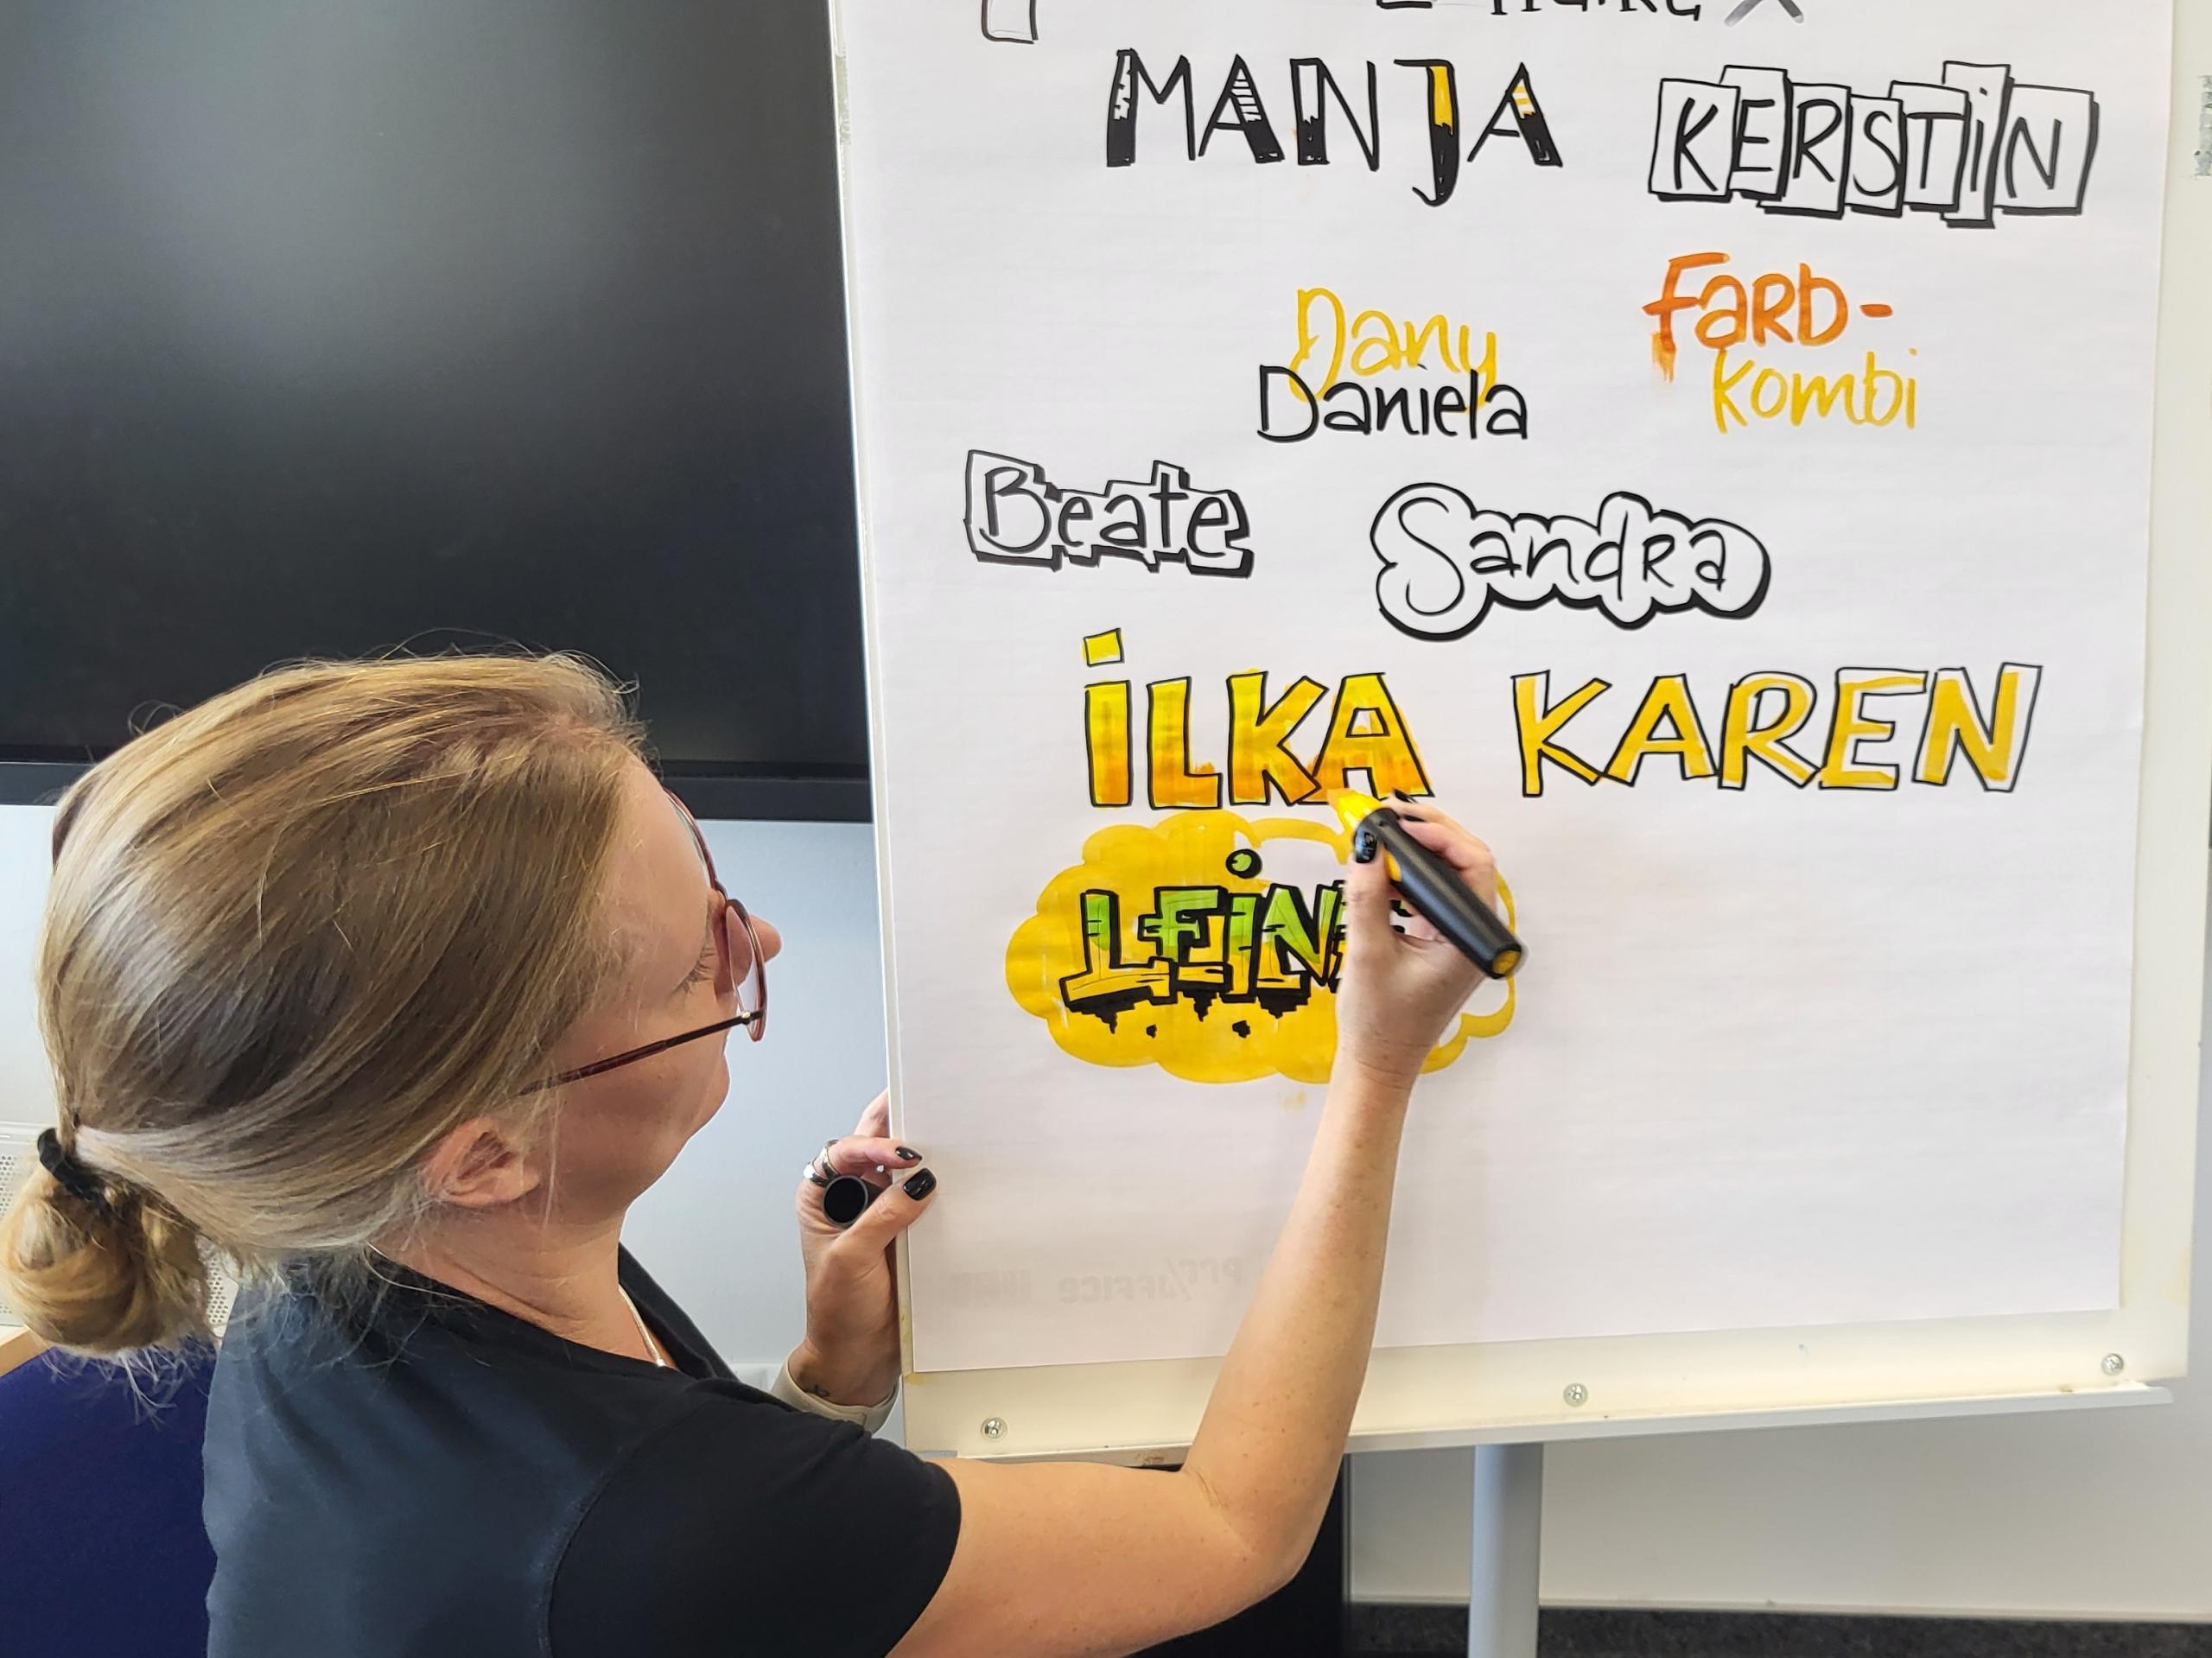 MANJA KERSTiN
Dany
Daniela
FARB-
kombi
Beate
Sandra
iLKA KAREN